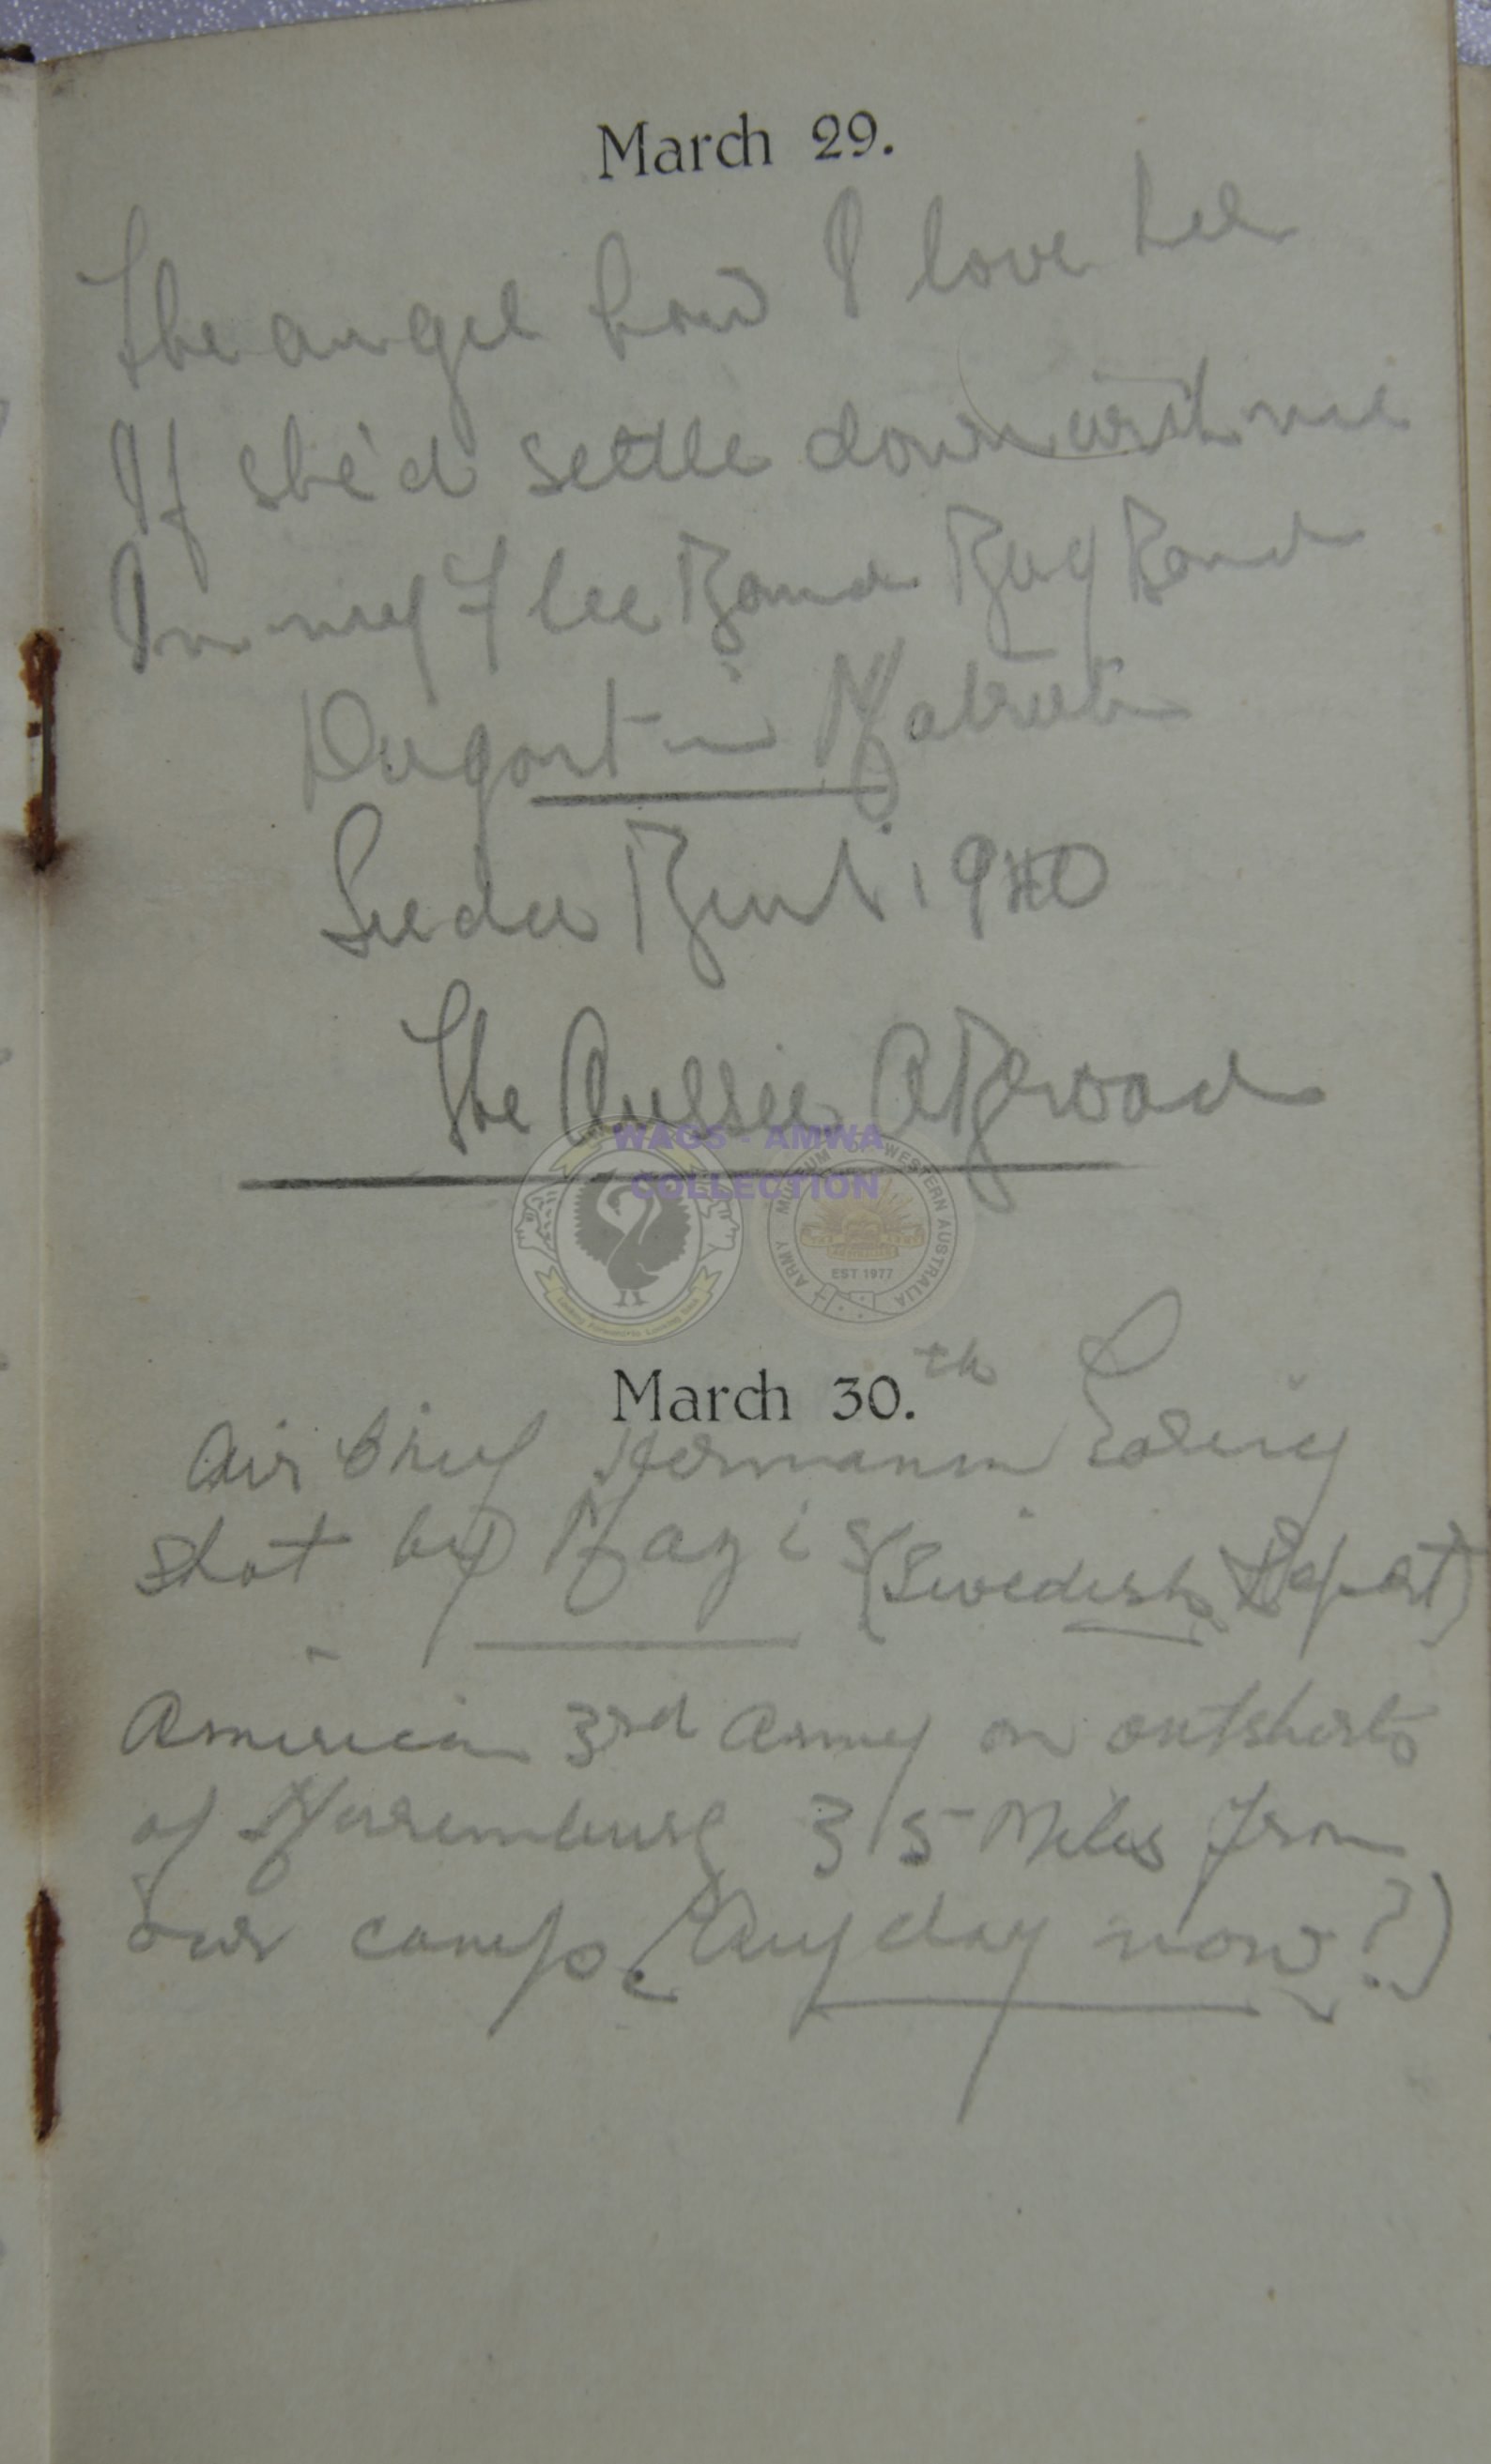 March 29.
The angel how I love her
If she'd settle down with me
In my Flee Bound Bug Bound
Dugout in Matruh
Seedee Bent 1940
The Aussie Abroad
WAGS - AMWA
COLLECTION
ARMY MUSEUM OF WESTERN AUSTRALIA
EST 1977
March 30.th
Air Chief Hermann Goering
shot by Nazis (Swedish Report)
American 3rd Army on outskirts
of Nuremburg 35 Miles from
our camp. (Any day now?)